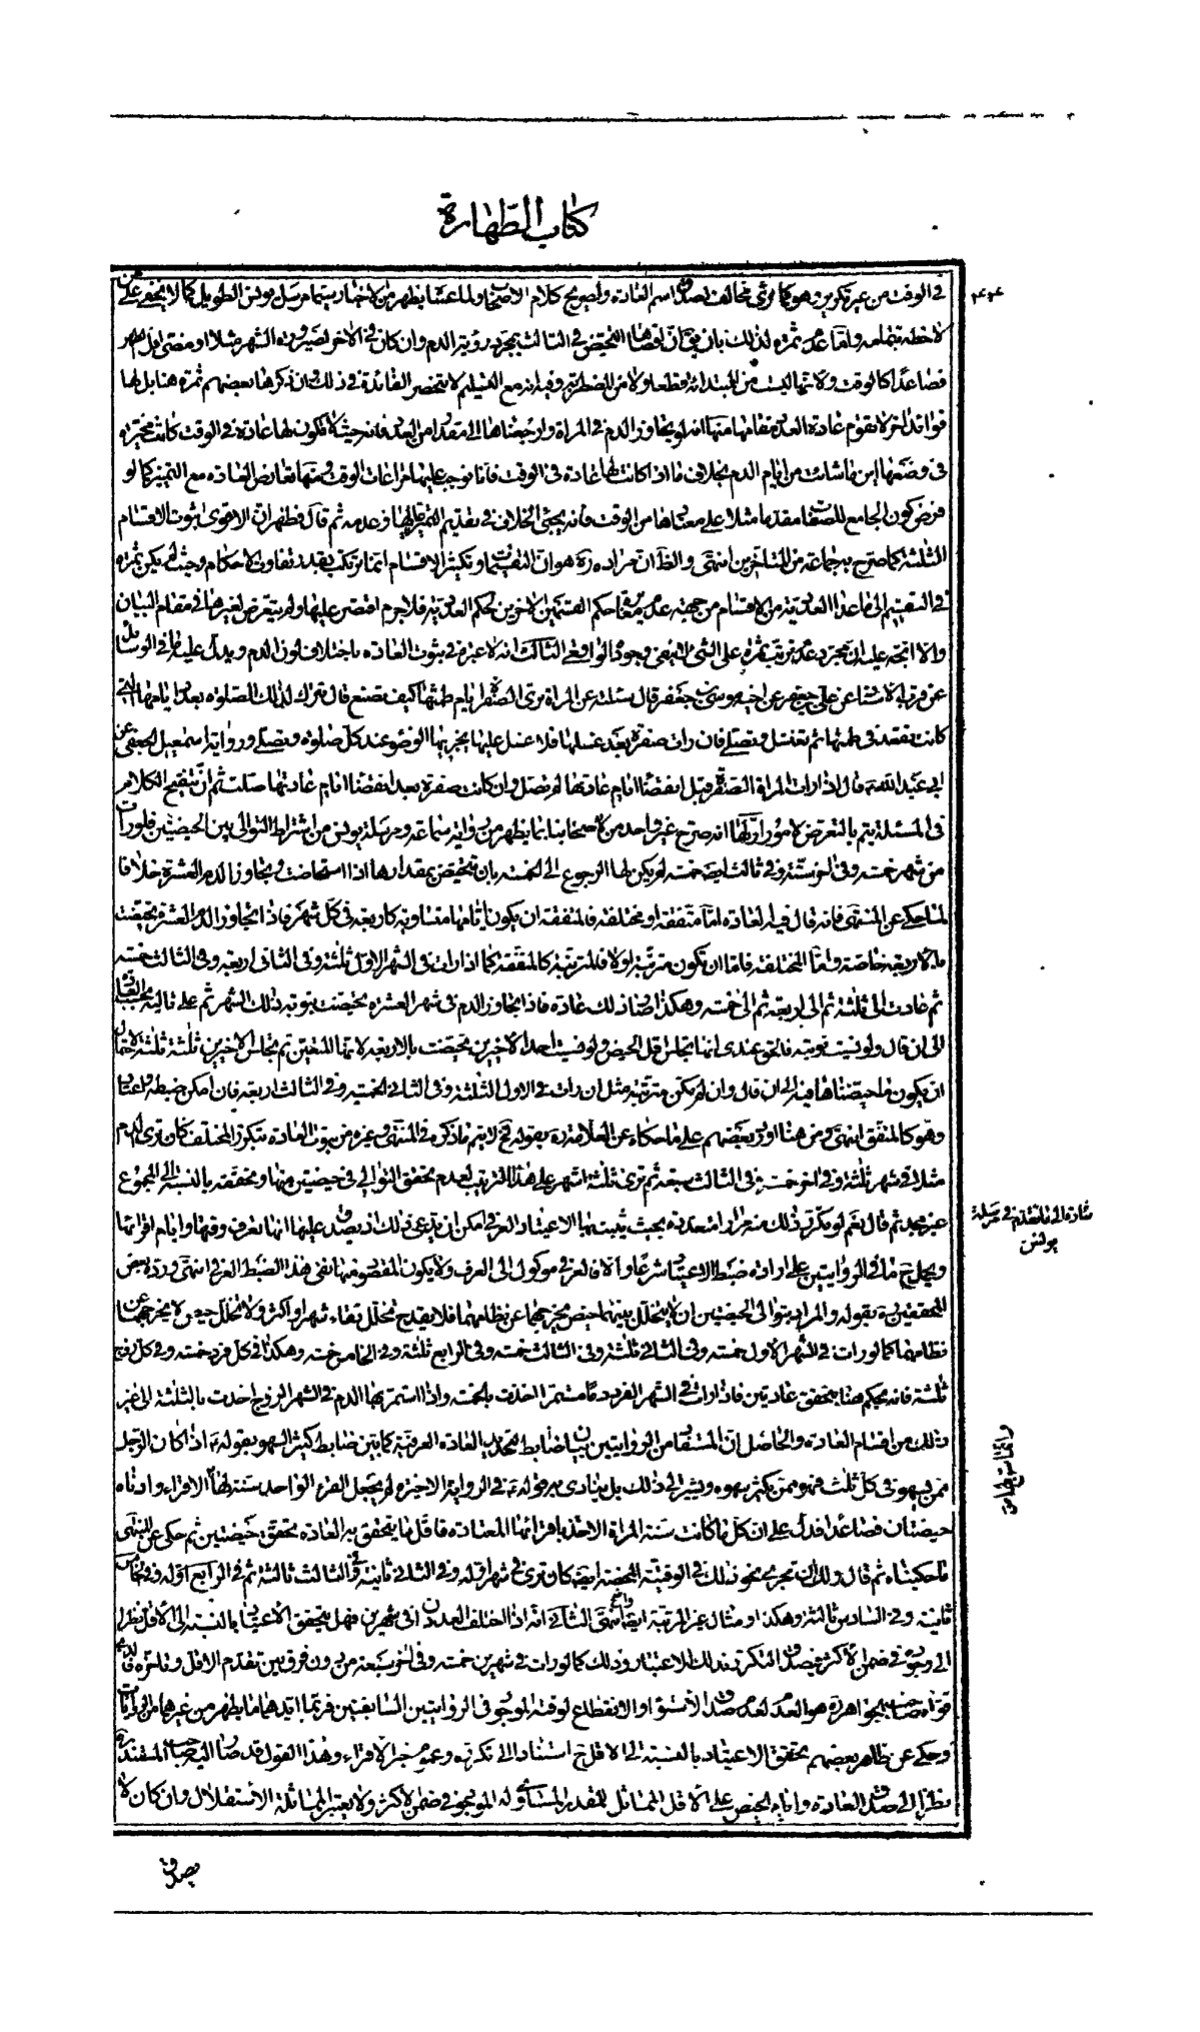 كتاب الطهارة
٤٠٤
في الوقت من غير تكرير وهو كما ترى مخالف لصدق اسم العادة ولصريح كلام الاصحاب ولما عشا يظهر من الاخبار يتمام مرسل يونس الطويل كما لا يخفى على من
لاحظه بتمامه وامّا عدم ثمرة لذلك بان يق ان لفضاها التحيض في الثالث بمجرد رؤية الدم وان كان في الاخر لصيرورة الشهر مثلا او مضى اقل الطهر
فصاعدا كالوقت ولانها ليست من المبتدائه قطعا ولا من المضطربة وفيه انه مع التسليم لا ينحصر الفائدة في ذلك وان ذكرها بعضهم ثمرة هنا بل لها
فوائد اخر لا تقوم عادة العدد مقامها منها انه لو تجاوز الدم في المراة وارجعناها الى مقدار من العدد فانه حيث لا تكون لها عادة في الوقت كانت مخيرة
في وضعها اين ما شائت من ايام الدم بخلاف ما اذا كانت لها عادة في الوقت فانا نوجب عليها مراعات الوقت ومنها تعارض العادة مع التميز كما لو
فرض كون الجامع للصفات مقدما مثلا على معتادها من الوقت فانه يجيئ الخلاف في تقديم التميز عليها وعدمه ثم قال فظهر ان الاقوى ثبوت الاقسام
الثلثة كما صرح به جماعة من المتاخرين انتهى والظ ان مراده ره هو ان التقسيمات وتكثير الاقسام انما يرتكب بقدر تفاوت الاحكام وحيث لم يكن ثمرة
في التقسيم الى ما عدا العددية من الاقسام من جهة عدم حكم القسمين الاخرين لحكم العددية فلا جرم اقتصر عليها ولم يتعرض لغيرها في مقام البيان
والا اتجه عليه ان مجرد عدم ترتب ثمرة على الشئ لا ينفى وجوده الواقعي الثالث انه لا عبرة في ثبوت العادة باختلاف لون الدم ويدل عليه ما في الوسائل
عن قرب الاسناد عن علي بن جعفر عن اخيه موسى بن جعفر قال سئلته عن المراة ترى الصفرة ايام طمثها كيف تصنع قال تترك لذلك الصلوة بعدد ايامها التي
كانت تقعد في طمثها ثم تغتسل وتصلى فان رات صفرة بعد غسلها فلا غسل عليها يجزيها الوضوء عند كل صلوة وتصلى ورواية اسمعيل الجعفي عن
ابي عبد الله ع قال اذا رات المراة الصفرة قبل انقضاء ايام عادتها لم تصل وان كانت صفرة بعد انقضاء ايام عادتها صلت ثم ان تنقيح الكلام
في المسئلة يتم بالتعرض لامور اولها انه صرح غير واحد من اصحابنا بما يظهر من رواية سماعة ومرسلة يونس من اشتراط التوالي بين الحيضتين فلو رات
من شهر خمسة وفي اخر ستة وفي ثالث ايضا خمسة لم يكن لها الرجوع الى الخمسة بان تتحيض بمقدارها اذا استحاضت وتجاوز الدم العشرة خلافا
لما حكى عن المنتهى فانه قال فيه العادة امّا متفقة او مختلفة فالمتفقة ان يكون ايامها متساوية كاربعة في كل شهر فاذا تجاوز الدم العشرة تحيضت
بالاربعة خاصة وامّا المختلفة فامّا ان تكون مترتبة او لا فالمترتبة كالمتفقة كما اذا رات في الشهر الاول ثلثة وفي الثاني اربعة وفي الثالث خمسة
ثم عادت الى ثلثة ثم الى اربعة ثم الى خمسة وهكذا فصار ذلك عادة فاذا تجاوز الدم في شهر العشرة تحيضت بنوبة ذلك الشهر ثم على تاليه بحسب العادة
الى ان قال ولو نسيت نوبته فالحق عندي انها تجلس اقل الحيض ولو نسيت احد الاخيرين تحيضت بالاربعة لانها المتيقن ثم تجلس الاخيرين ثلثة ثلثة لاحتمال
ان يكون ما حيضناها فيه الى ان قال وان لم تكن مترتبة مثل ان رات في الاول الثلثة وفي الثاني الخمسة وفي الثالث اربعة فان امكن ضبطه واعتيابه
وهو كالمتفق انتهى ومن هنا اورد بعضهم على ما حكاه عن العلامة ره بقوله فح لا يتم ما ذكره في المنتهى وغيره من ثبوت العادة بتكرر المختلف كان ترى الدم
مثلا في شهر ثلثة وفي اخر خمسة وفي الثالث سبعة ثم ترى ثلثة اشهر على هذا الترتيب لعدم تحقق التوالي في حيضتين منها وتحققه بالنسبة الى المجموع
غير مجد ثم قال نعم لو تكرر ذلك منه مرارا متعددة بحيث يثبت بها الاعتياد العرفي امكن ان يدعى ذلك اذ يصدق عليها انها تعرف وقتها وايام اقرائها
ويحمل ح ما في الروايتين على ارادة ضبط الاعتياد شرعا والا فالعرفي موكول الى العرف ولا يكون المقصود منها نفي هذا الضبط العرفي انتهى ورده بعض
المحققين ره بقوله والمراد بتوالي الحيضتين ان لا يتخلل بينهما حيض مخرجهما عن نظامهما فلا يقدح تخلل نقاء شهر او اكثر ولا تخلل حيض لا يخرجهما عن
نظامهما كما لو رات في الشهر الاول خمسة وفي الثاني ثلثة وفي الثالث خمسة وفي الرابع ثلثة وفي الخامس خمسة وهكذا في كل فرد خمسة وفي كل زوج
ثلثة فانه يحكم هنا بتحقق عادتين فاذا رات في الشهر الفرد دما مستمرا اخذت بالخمسة واذا استمر بها الدم في الشهر الزوج اخذت بالثلثة الى غير
ذلك من اقسام العادة والحاصل ان المستفاد من الروايتين بيان ضابط لتحديد العادة العرفية كما بين ضابط كثير السهو بقوله ع اذا كان الرجل
ممن يسهو في كل ثلث فهو ممن يكثر سهوه ويشير الى ذلك بل ينادي به قوله ع في الرواية الاخيرة لم يجعل القرء الواحد سنة لها الاقراء وادناه
حيضتان فصاعدا فدل على ان كل ما كانت سنة المراة الاخذ باقرائها المعتادة فاقل ما يتحقق به العادة تحقق حيضتين ثم حكى عن المنتهى
ما حكيناه ثم قال ولك ان تجري نحو ذلك في الوقتية المحضة ايضا كان ترى في شهر اوله وفي الثاني ثانيه وفي الثالث ثالثه ثم في الرابع اوله وفي الخامس
ثانيه وفي السادس ثالثه وهكذا ومثال غير المرتبة ايضا واضح انتهى الثاني انه اذا اختلف العددان في شهرين فهل يتحقق الاعتياد بالنسبة الى الاقل نظرا
الى وجوده في ضمن الاكثر فيصدق التكرر بذلك الاعتبار وذلك كما لو رات في شهرين خمسة وفي اخر سبعة من دون فرق بين تقدم الاقل وتاخره فالذي
قواه صاحب الجواهر ره هو العدم لعدم صدق الاستواء والانقطاع لوقته الموجود في الروايتين السابقتين فربما ايدهما ما يظهر من غيرهما من الروايات
وحكى عن ظاهر بعضهم تحقق الاعتياد بالنسبة الى الاقل ح استنادا الى تكرره وعموم خبر الاقراء وهذا القول قد صار اليه صاحب المستند ره
نظرا الى صدق العادة وايام الحيض على الاقل المماثل للقدر المساوي له الموجود في ضمن الاكثر ولا يعتبر المماثلة الاستقلال وان كان لا
اشارة الى ما تقدم في مرسلة
يونس
يصدق